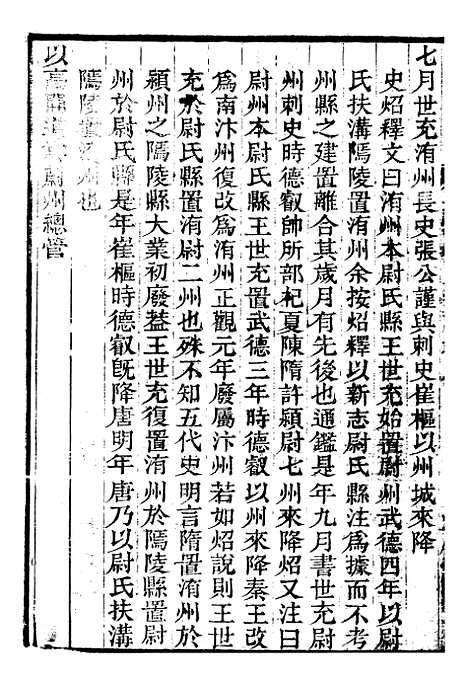 七月世充洧州長史張公謹與刺史崔樞以州城來降
史炤釋文曰洧州本尉氏縣王世充始置尉州武德四年以尉
氏扶溝鄢陵置洧州余按炤釋以新志尉氏縣注爲據而不考
州縣之建置離合其歲月有先後也通鑑是年九月書世充尉
州刺史時德叡帥所部杞夏陳隋許潁尉七州來降炤又曰
尉州本尉氏縣王世充置武德三年時德叡以州來降秦王改
爲南汴州復改爲洧州正觀元年廢屬汴州若如炤說則王世
充於尉氏縣置洧尉二州也殊不知五代史明言隋置洧州於
潁州之鄢陵縣大業初廢葢王世充復置洧州於鄢陵縣置尉
州於尉氏縣是年崔樞時德叡旣降唐明年唐乃以尉氏扶溝
鄢陵置洧州也
以高開道爲蔚州總管